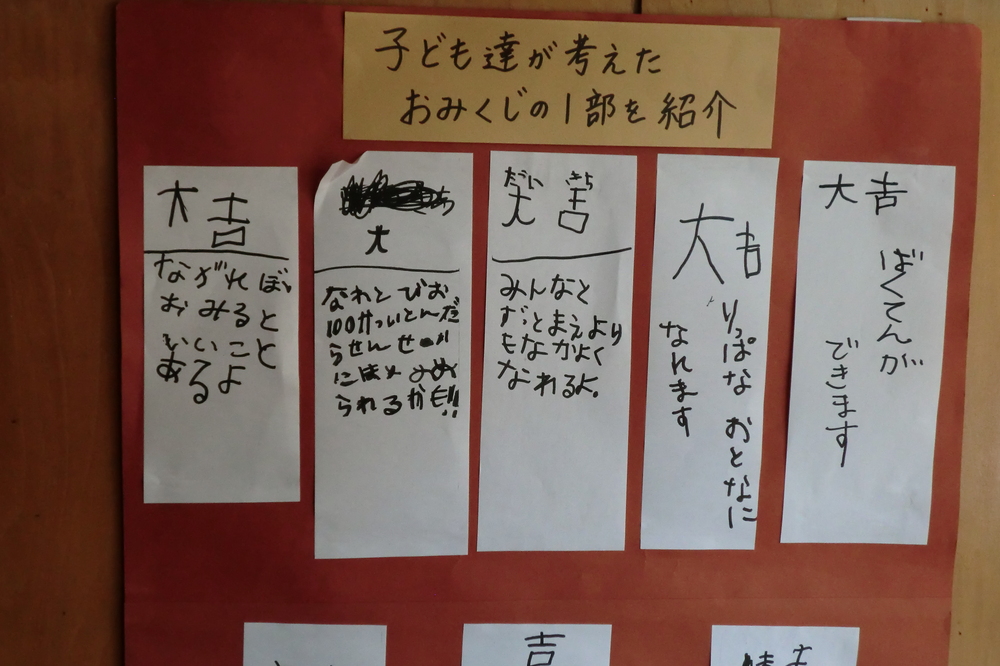 子ども達が考えた
おみくじの1部を紹介
大吉
ながれぼし
おみると
いいこと
あるよ
ち
大
なわとびお
100かいとんだ
らせんせー
にほめ
られるかも!!
だい きち
大吉
みんなと
ずとまえより
もなかよく
なれるよ。
大吉
りっぱな おとなに
なれます
大吉
ばくてんが
できます
吉